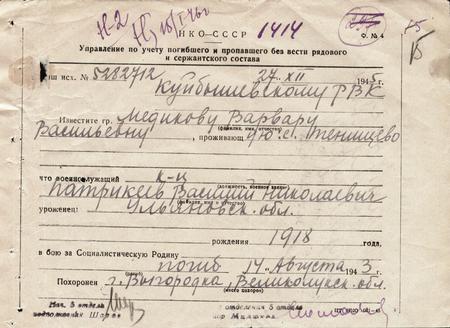 Н-2
НКО-СССР 1414 Ф. № 4 15
Управление по учету погибшего и пропавшего без вести рядового
и сержантского состава
исх. № 5282712 27 XII 1945 г.
Куйбышевскому РВК
Известите гр. Медикову Варвару
Васильевну (фамилия, имя, отчество), проживающ.
что военнослужащий к-ц
(должность, военное звание)
Патрикеев Василий Николаевич
(фамилия, имя и отчество)
уроженец: Ульяновск. обл.
рождения 1918 года,
в бою за Социалистическую Родину
погиб 14 Августа 1943 г.
Похоронен г. Выгородка Великолукск. обл.
Нач. 3 отдела отделения 3 отдела
подполковник